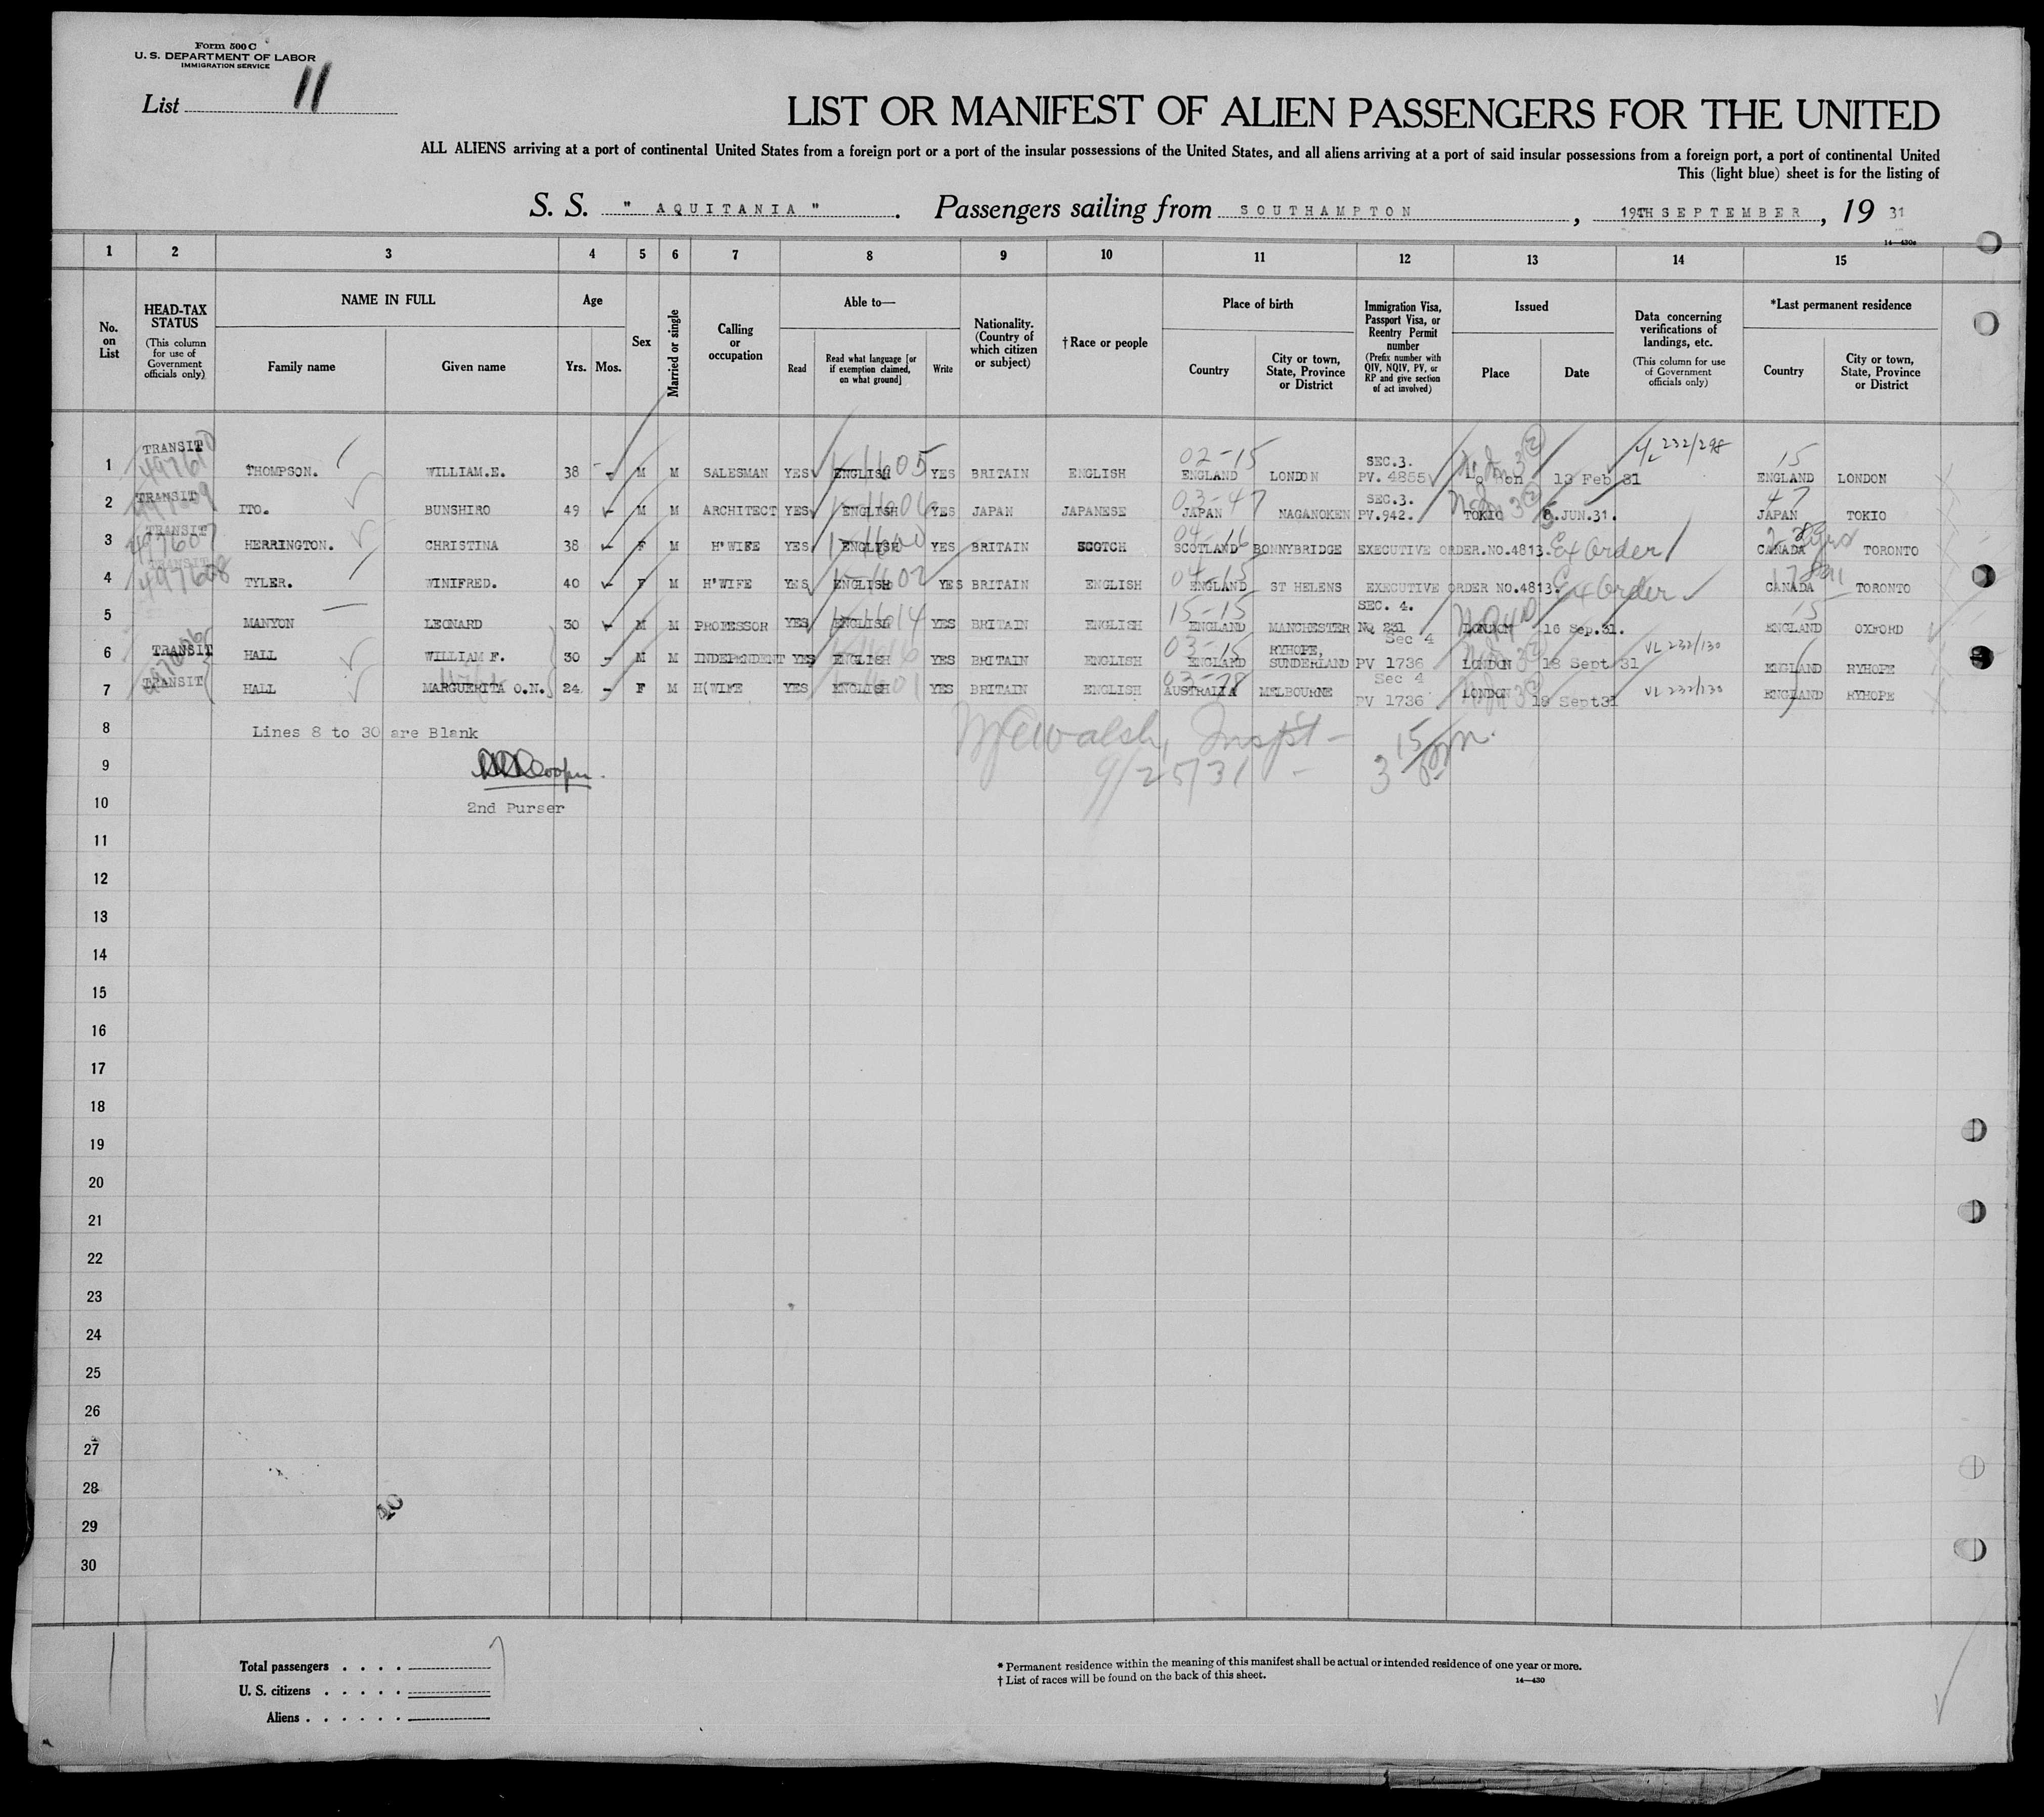 Form 500 C
U. S. DEPARTMENT OF LABOR
IMMIGRATION SERVICE
List 11
LIST OR MANIFEST OF ALIEN PASSENGERS FOR THE UNITED
ALL ALIENS arriving at a port of continental United States from a foreign port or a port of the insular possessions of the United States, and all aliens arriving at a port of said insular possessions from a foreign port, a port of continental United
This (light blue) sheet is for the listing of
S. S. " AQUITANIA " . Passengers sailing from SOUTHAMPTON , 19TH SEPTEMBER , 19 31
14—430a
1 2 3 4 5 6 7 8 9 10 11 12 13 14 15
No. on List
HEAD-TAX STATUS (This column for use of Government officials only)
NAME IN FULL
Family name Given name
Age
Yrs. Mos.
Sex
Married or single
Calling or occupation
Able to—
Read Read what language [or if exemption claimed, on what ground] Write
Nationality. (Country of which citizen or subject)
† Race or people
Place of birth
Country City or town, State, Province or District
Immigration Visa, Passport Visa, or Reentry Permit number (Prefix number with QIV, NQIV, PV, or RP and give section of act involved)
Issued
Place Date
Data concerning verifications of landings, etc. (This column for use of Government officials only)
*Last permanent residence
Country City or town, State, Province or District
TRANSIT 02-15 SEC.3. VL 232/298 15
1 497610 THOMPSON. WILLIAM.E. 38 - M M SALESMAN YES ENGLISH YES BRITAIN ENGLISH ENGLAND LONDON PV. 4855 London 13 Feb 31 ENGLAND LONDON
TRANSIT 03-47 SEC.3. 47
2 497609 ITO. BUNSHIRO 49 - M M ARCHITECT YES ENGLISH YES JAPAN JAPANESE JAPAN NAGANOKEN PV.942. TOKIO 8.JUN.31. JAPAN TOKIO
TRANSIT 04-16
3 497607 HERRINGTON. CHRISTINA 38 - F M H'WIFE YES ENGLISH YES BRITAIN SCOTCH SCOTLAND BONNYBRIDGE EXECUTIVE ORDER.NO.4813. Ex Order CANADA TORONTO
TRANSIT 04-15
4 497608 TYLER. WINIFRED. 40 - F M H'WIFE YES ENGLISH YES BRITAIN ENGLISH ENGLAND ST HELENS EXECUTIVE ORDER NO.4813. Ex Order CANADA TORONTO
15-15 SEC. 4. 15
5 MANYON LEONARD 30 - M M PROFESSOR YES ENGLISH YES BRITAIN ENGLISH ENGLAND MANCHESTER NQ 231 LONDON 16 Sep.31. ENGLAND OXFORD
03-15 Sec 4 VL 232/130
6 TRANSIT HALL WILLIAM F. 30 - M M INDEPENDENT YES ENGLISH YES BRITAIN ENGLISH ENGLAND RYHOPE, SUNDERLAND PV 1736 LONDON 18 Sept 31 ENGLAND RYHOPE
03-78 Sec 4 VL 232/130
7 TRANSIT HALL MARGUERITA O.N. 24 - F M H(WIFE YES ENGLISH YES BRITAIN ENGLISH AUSTRALIA MELBOURNE PV 1736 LONDON 18 Sept31 ENGLAND RYHOPE
8 Lines 8 to 30 are Blank Walsh, Inspt -
9 Cooper. 9/25/31 - 3 15 pm.
10 2nd Purser
11
12
13
14
15
16
17
18
19
20
21
22
23
24
25
26
27
28
29
30
Total passengers . . . .
U. S. citizens . . . . .
Aliens . . . . . .
* Permanent residence within the meaning of this manifest shall be actual or intended residence of one year or more.
† List of races will be found on the back of this sheet.
14—430